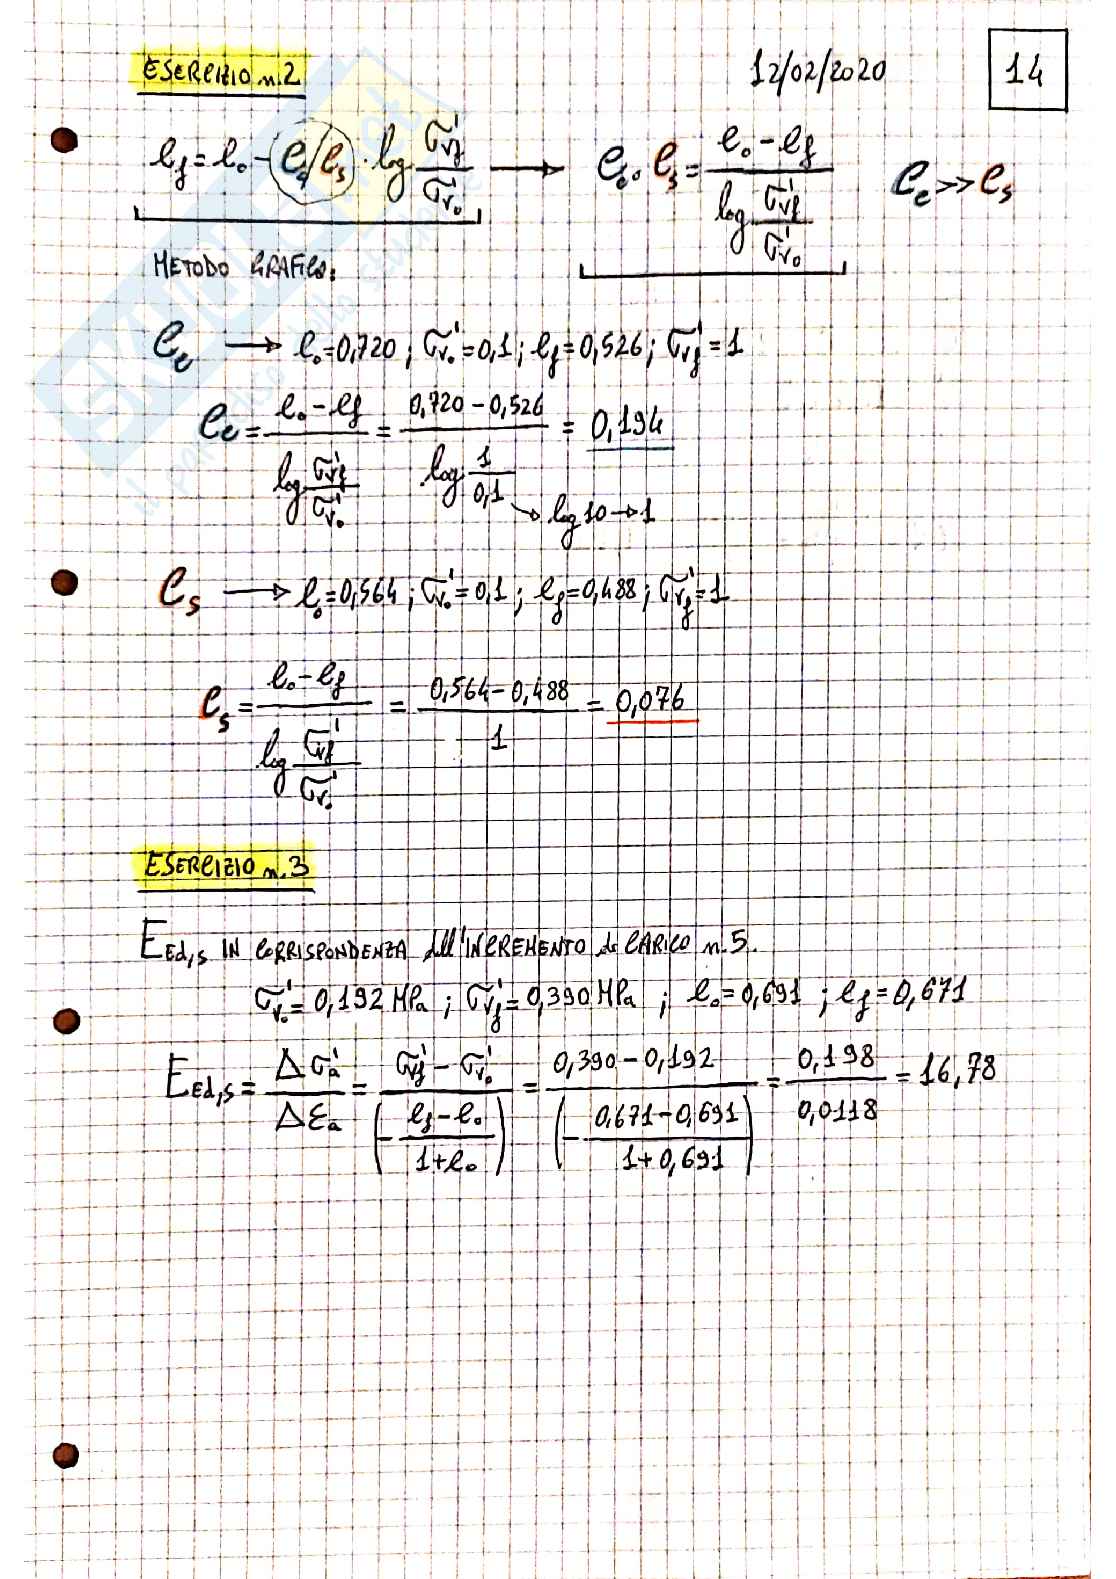 ESERCIZIO n.2
12/02/2020
14
e_f = e_0 - (C_c/C_s) · log σ'_vf / σ'_v0 → C_c o C_s = (e_0 - e_f) / (log σ'_vf / σ'_v0)   C_c >> C_s
METODO GRAFICO:
C_c → e_0=0,720 ; σ'_v0=0,1 ; e_f=0,526 ; σ'_vf=1
C_c = (e_0 - e_f) / (log σ'_vf / σ'_v0) = (0,720 - 0,526) / (log 1/0,1) = 0,194
→ log 10 → 1
C_s → e_0=0,564 ; σ'_v0=0,1 ; e_f=0,488 ; σ'_vf=1
C_s = (e_0 - e_f) / (log σ'_vf / σ'_v0) = (0,564 - 0,488) / 1 = 0,076
ESERCIZIO n.3
E_Ed,s IN CORRISPONDENZA dell'INCREMENTO di CARICO n.5.
σ'_v0 = 0,192 MPa ; σ'_vf = 0,390 MPa ; e_0=0,691 ; e_f=0,671
E_Ed,s = Δσ'_a / Δε_a = (σ'_vf - σ'_v0) / (- (e_f - e_0) / (1+e_0)) = (0,390 - 0,192) / (- (0,671 - 0,691) / (1+0,691)) = 0,198 / 0,0118 = 16,78